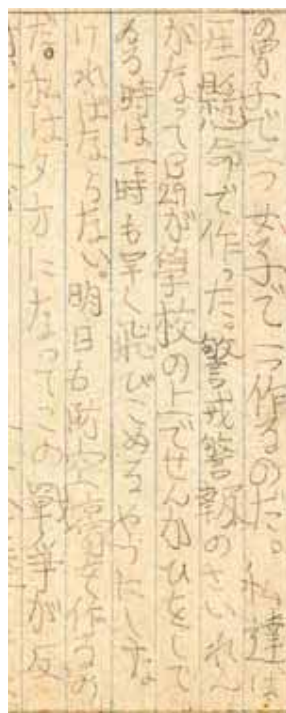 の男子で一つ女子で一つ作るのだ。私達は
一生懸命で作った。警戒警報のさいれん
がなってB29が学校の上でせんかいをして
ゐる時は一時も早く飛びこめるやうにしな
ければならない。明日も防空壕を作るの
だ。私は夕方になってこの戦争が反